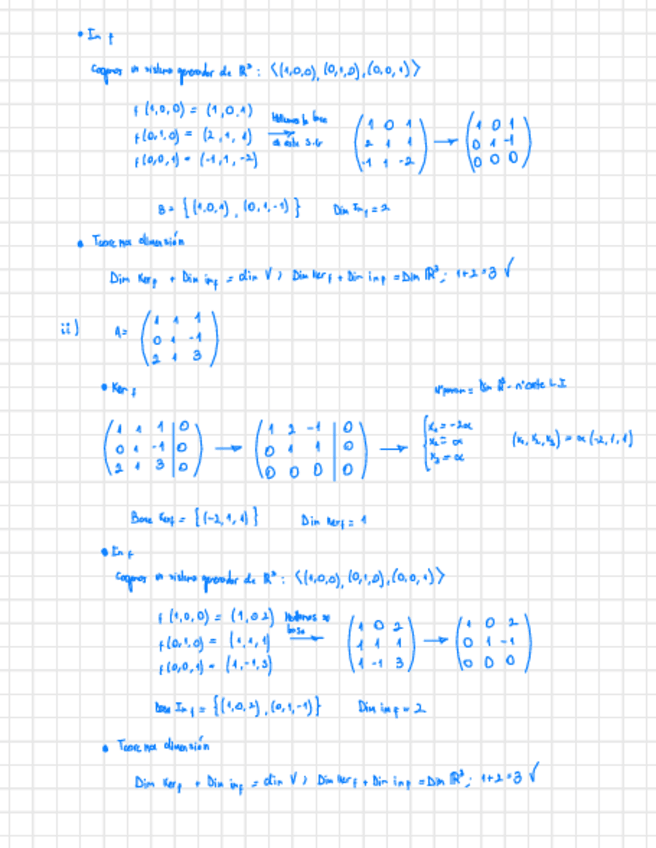 • Im f
Cogemos un sistema generador de ℝ³: ⟨(1,0,0), (0,1,0), (0,0,1)⟩
f(1,0,0) = (1,0,1)
f(0,1,0) = (2,1,1)
f(0,0,1) = (-1,1,-2)
Hallamos la base de este s.g
(1 0 1 / 2 1 1 / -1 1 -2) → (1 0 1 / 0 1 -1 / 0 0 0)
B = {(1,0,1), (0,1,-1)} Dim Im f = 2
• Teorema dimensión
Dim Ker f + Dim im f = dim V; Dim Ker f + Dim im f = Dim ℝ³; 1+2=3 ✓
ii) A = (1 1 1 / 0 1 -1 / 2 1 3)
• Ker f
(1 1 1 | 0 / 0 1 -1 | 0 / 2 1 3 | 0) → (1 2 -1 | 0 / 0 1 1 | 0 / 0 0 0 | 0) → { x₁ = -2α / x₂ = α / x₃ = α (x₁, x₂, x₃) = α(-2,1,1)
Base Ker f = {(-2,1,1)} Dim Ker f = 1
• Im f
Cogemos un sistema generador de ℝ³: ⟨(1,0,0), (0,1,0), (0,0,1)⟩
f(1,0,0) = (1,0 2)
f(0,1,0) = (1,1,1)
f(0,0,1) = (1,-1,3)
Hallamos base
(1 0 2 / 1 1 1 / 1 -1 3) → (1 0 2 / 0 1 -1 / 0 0 0)
Base Im f = {(1,0,2), (0,1,-1)} Dim im f = 2
• Teorema dimensión
Dim Ker f + Dim im f = dim V; Dim Ker f + Dim im f = Dim ℝ³; 1+2=3 ✓